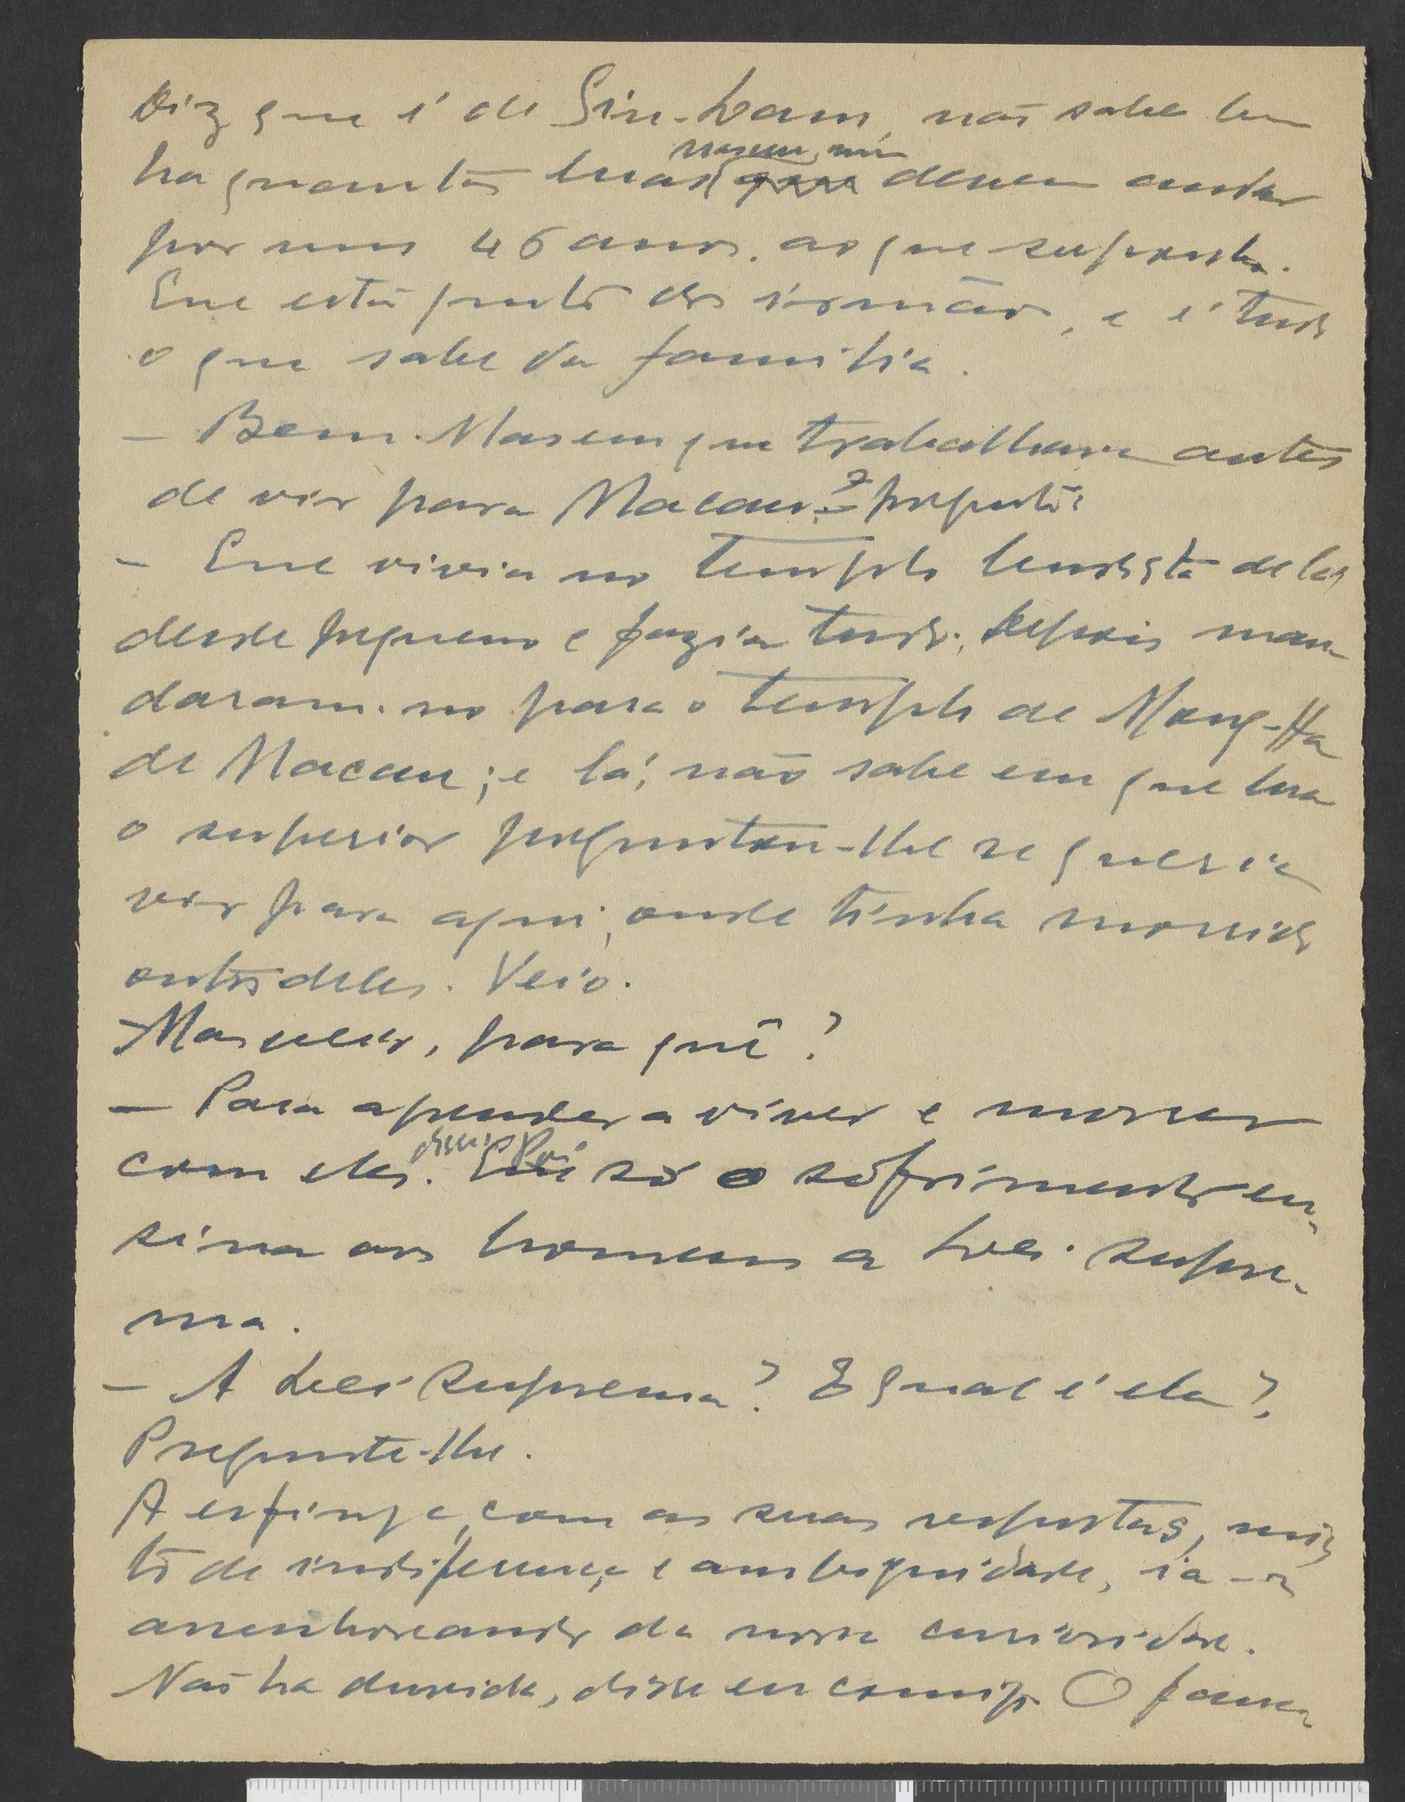 Diz que é de Sin-Lam, não sabe bem
ha quantas luas nasceu, mas devem andar
por uns 46 anos. ao que suponho.
Que está junto dos irmãos, e é tudo
o que sabe da familia.
— Bem. Mas em que trabalhava antes
de vir para Macau? – preguntei
— Que vivia no templo budista de lá,
desde pequeno e fazia tudo; depois man-
daram-no para o templo de Mong-Ha
de Macau; e lá, não sabe em que lua
o superior preguntou-lhe se queria
vir para aqui, onde tinha morrido
outro deles. Veio.
– Mas veio, para quê?
— Para aprender a viver e morrer
com eles. Que só o sofrimento en-
sina aos homens a Lei supre-
ma.
— A Lei suprema? E qual é ela?
Pregunte-lhe.
A esfinge, com as suas respostas, mis-
to de indiferença e ambiguidade, ia-se
assenhoreando da nossa curiosidade.
Não ha duvida, disse eu comigo. O